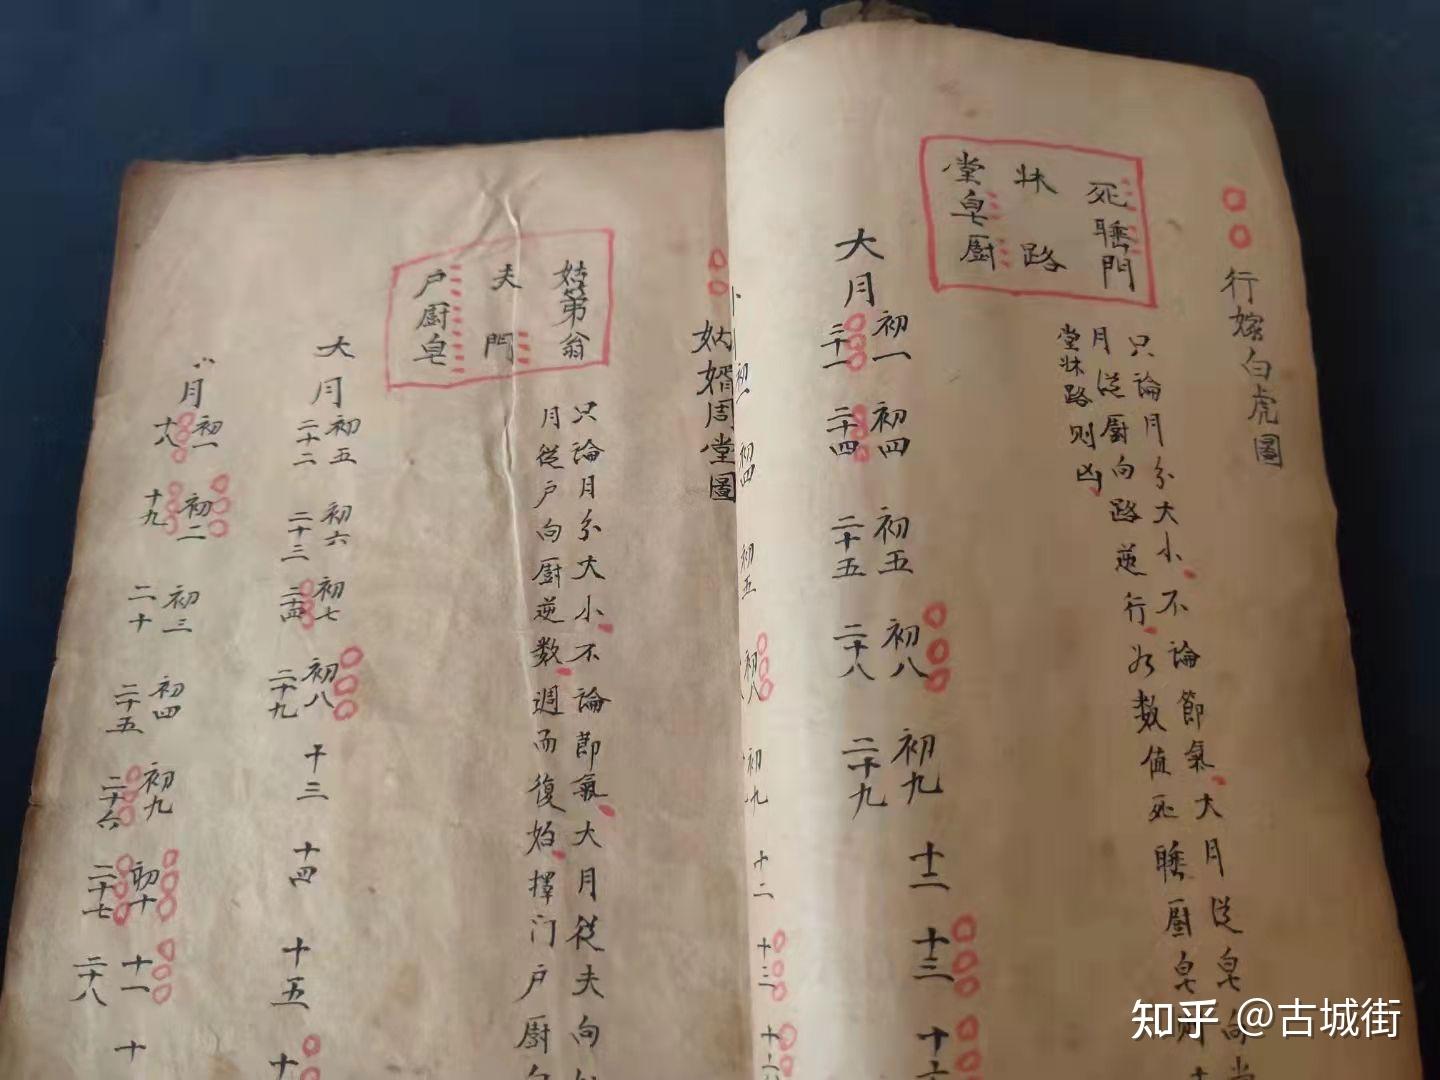 行嫁白虎圖
死睡門
牀路
堂皂厨
只論月分大小不論節氣大月從皂向堂
月從厨向路逆行
数值死睡厨皂
堂牀路则凶
大月
初一 初四 初五 初八 初九 十二 十三
二十一 二十四 二十五 二十八 二十九
初一 初四 初五 初八 初九 十二 十三
姑婿周堂圖
姑弟翁
夫門
户厨皂
只論月分大小不論節氣大月從夫向
月從户向厨逆数週而復始擇门户厨
大月
初五 初六 初七 初八 十三 十四 十五
二十二 二十三 二十四 二十九
月
初一 初二 初三 初四 初九 初十 十一
十八 十九 二十 二十五 二十六 二十七 二十八
知乎 @古城街